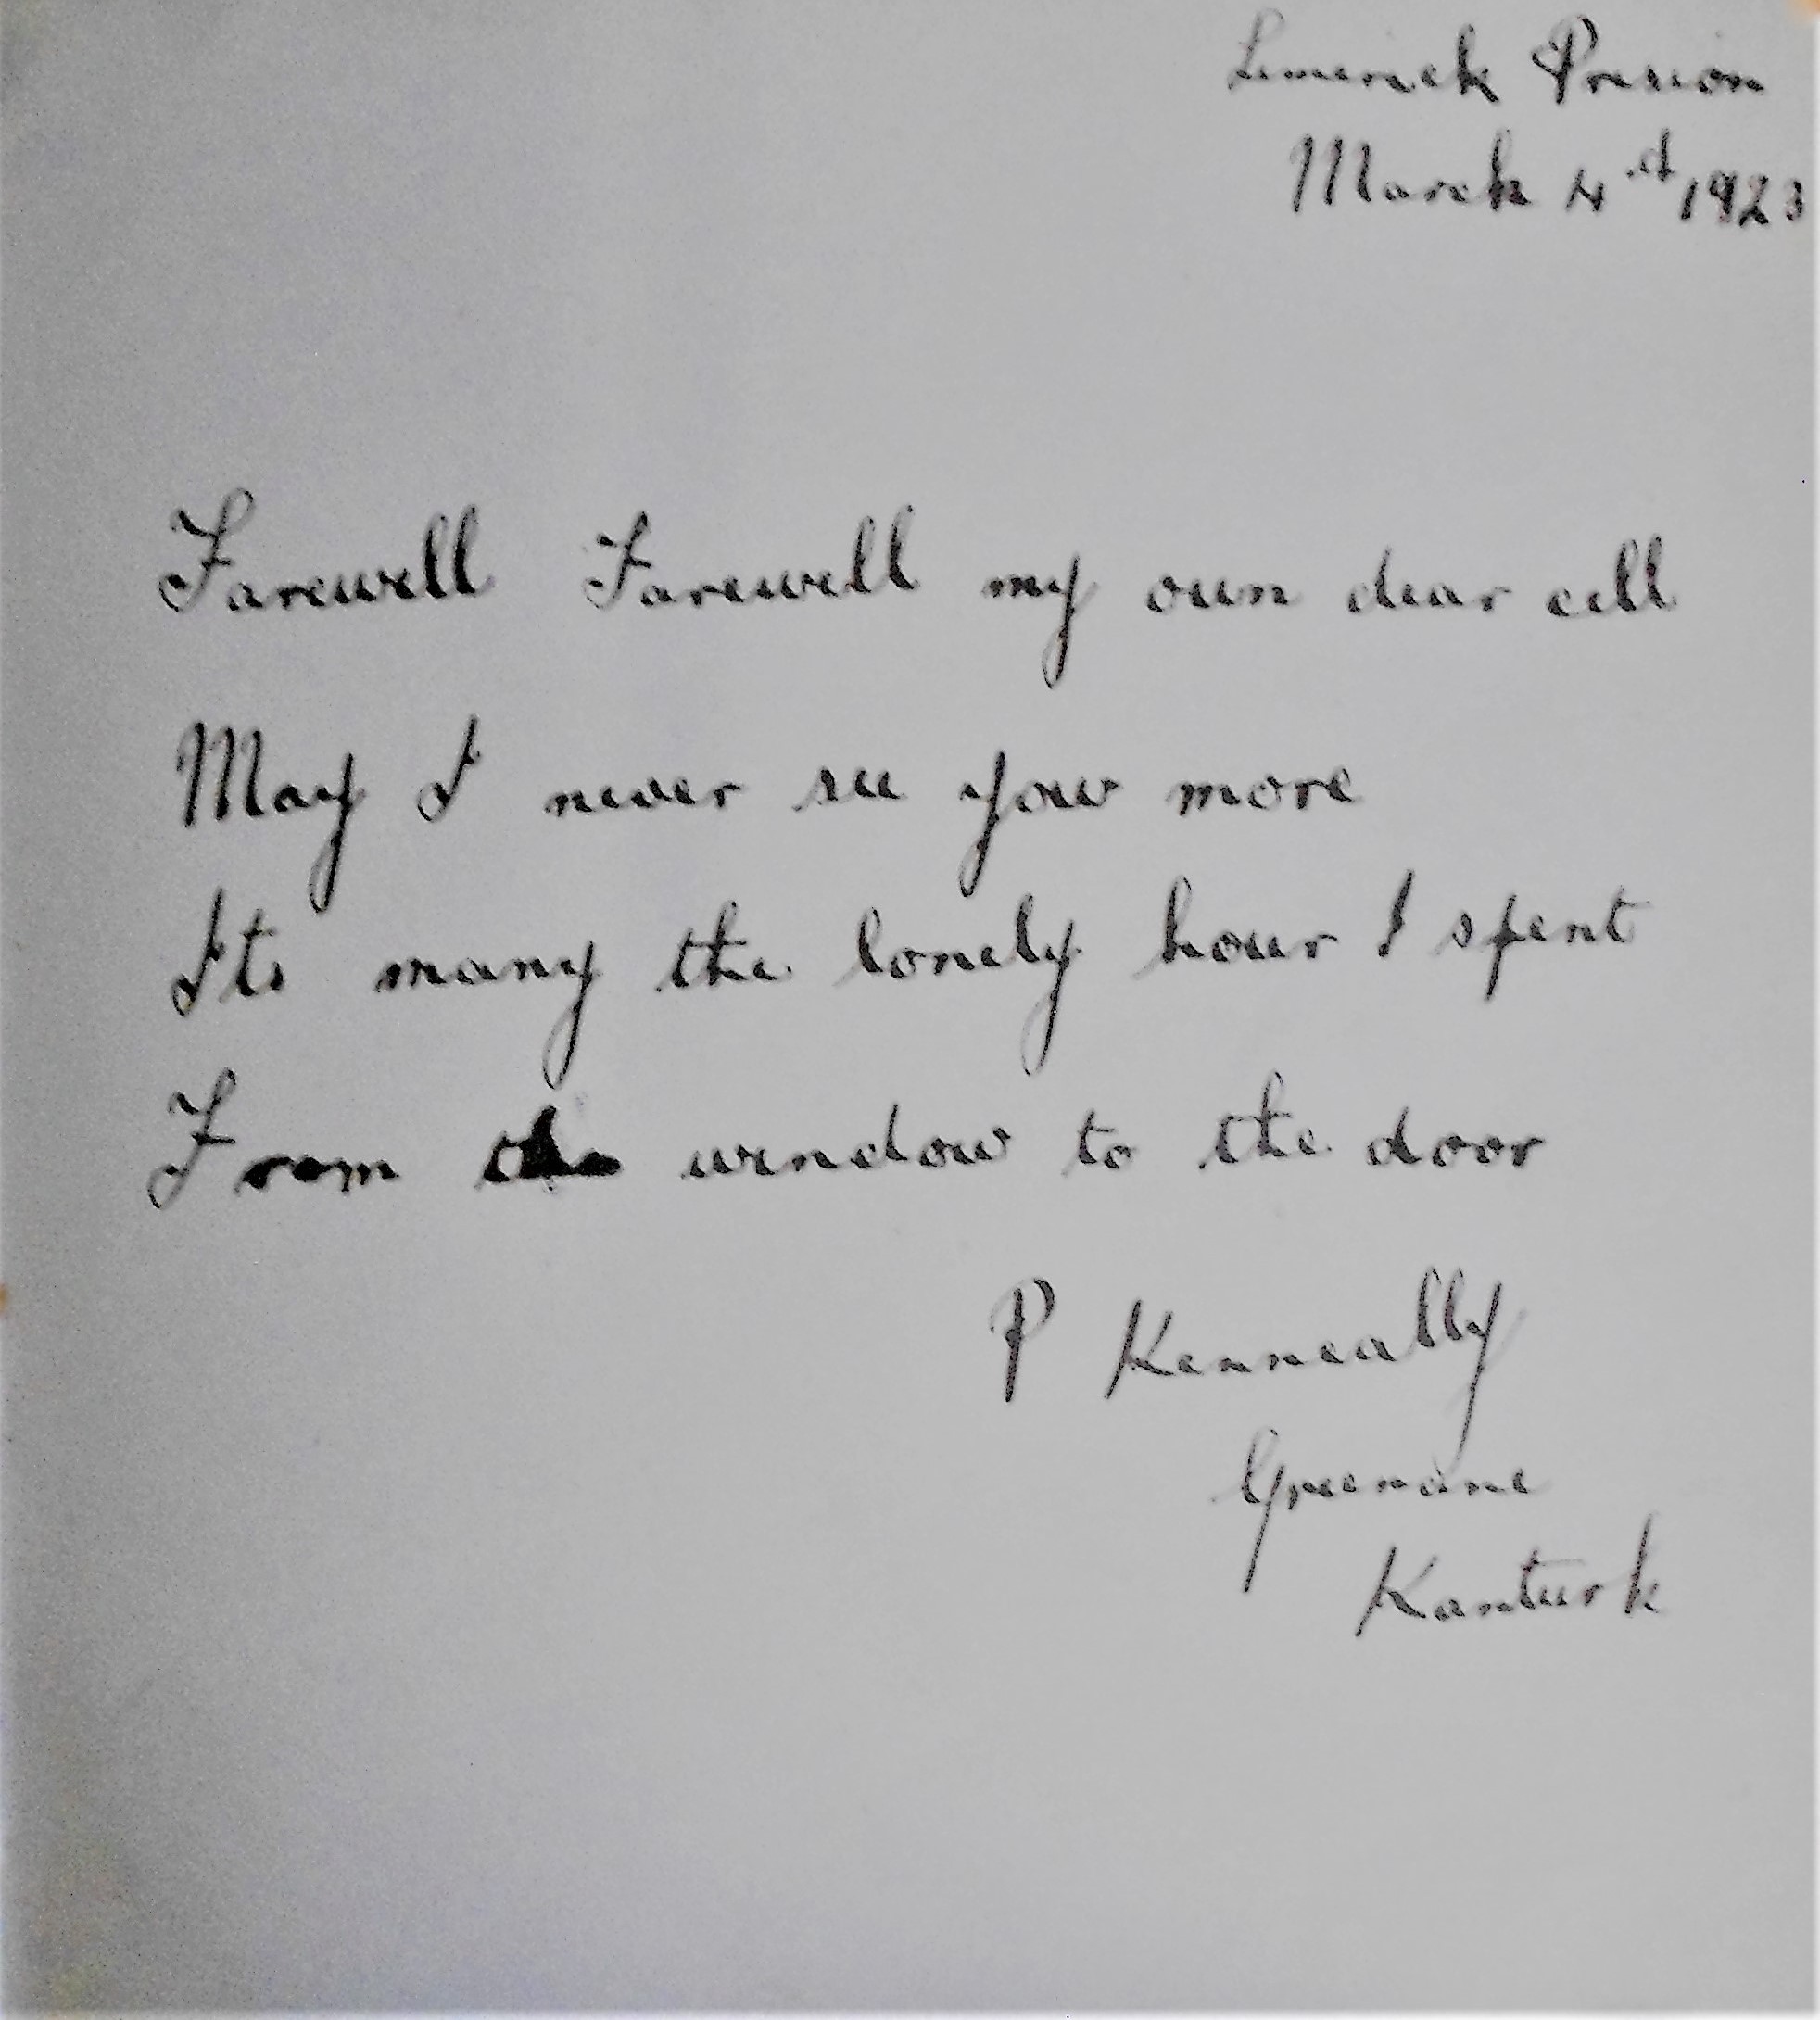 Limerick Prision
March 4th 1923
Farewell Farewell my own dear cell
May I never see you more
Its many the lonely hour I spent
From the window to the door
P Kenneally
Greenane
Kanturk